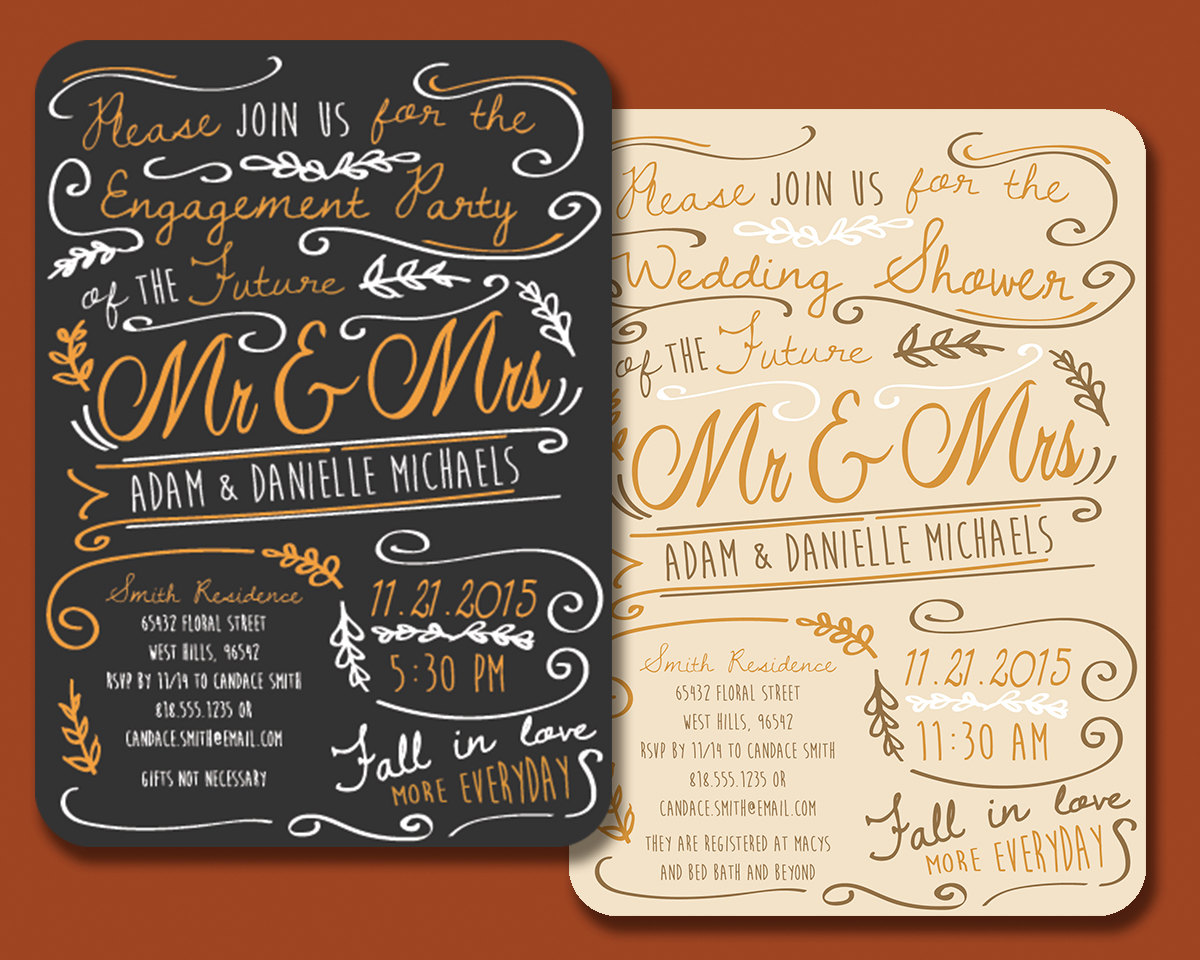 Please JOIN US for the
Engagement Party
of THE Future
Mr & Mrs
ADAM & DANIELLE MICHAELS
Smith Residence
65432 FLORAL STREET
WEST HILLS, 96542
RSVP BY 11/14 TO CANDACE SMITH
818.555.1235 OR
CANDACE.SMITH@EMAIL.COM
GIFTS NOT NECESSARY
11.21.2015
5:30 PM
Fall in love
MORE EVERYDAY
Please JOIN US for the
Wedding Shower
of THE Future
Mr & Mrs
ADAM & DANIELLE MICHAELS
Smith Residence
65432 FLORAL STREET
WEST HILLS, 96542
RSVP BY 11/14 TO CANDACE SMITH
818.555.1235 OR
CANDACE.SMITH@EMAIL.COM
THEY ARE REGISTERED AT MACYS
AND BED BATH AND BEYOND
11.21.2015
11:30 AM
Fall in love
MORE EVERYDAY